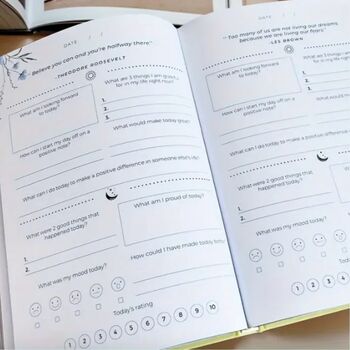 DATE / /
"Believe you can and you're halfway there"
-THEODORE ROOSEVELT
What am I looking forward
to today?
What are 3 things I am
for in my life right now?
1.
2.
3.
How can I start my day off on a
positive note?
What would make today great?
What can I do today to make a positive difference in someone else's life?
What were 2 good things that
happened today?
1.
2.
What am I proud of today?
What was my mood today?
How could I have made today
Today's rating
1 2 3 4 5 6 7 8 9 10
DATE / /
"Too many of us are not living our dreams
because we are living our fears"
-LES BROWN
What am I looking forward
to today?
1.
2.
3.
How can I start my day off on a
positive note?
What can I do today to make a positive
What were 2 good things that
happened today?
1.
2.
What was my mood today?
1 2 3 4